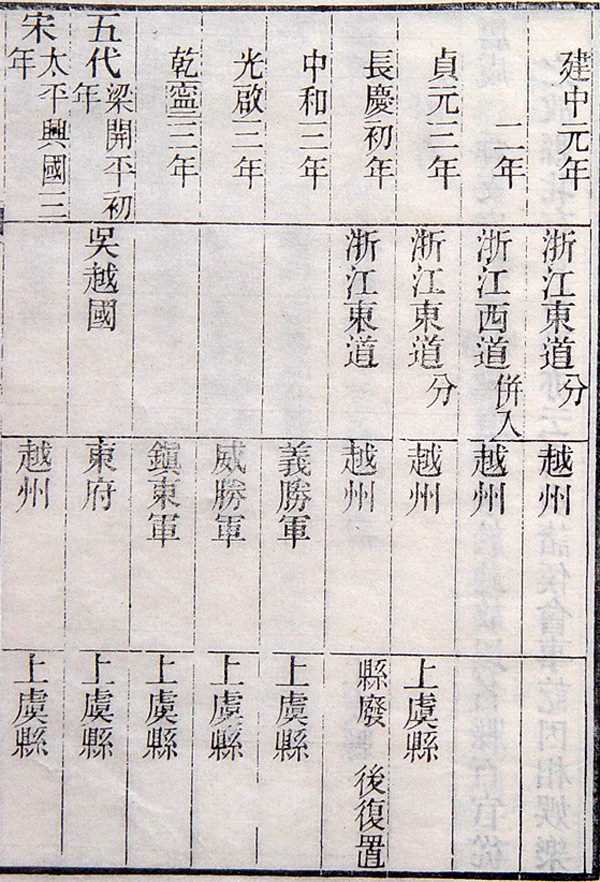 建中元年 浙江東道分 越州
二年 浙江西道併入 越州
貞元三年 浙江東道分 越州 上虞縣
長慶初年 浙江東道 越州 縣廢 後復置
中和三年 義勝軍 上虞縣
光啟三年 威勝軍 上虞縣
乾寧三年 鎭東軍 上虞縣
五代梁開平初年 吳越國 東府 上虞縣
宋太平興國三年 越州 上虞縣